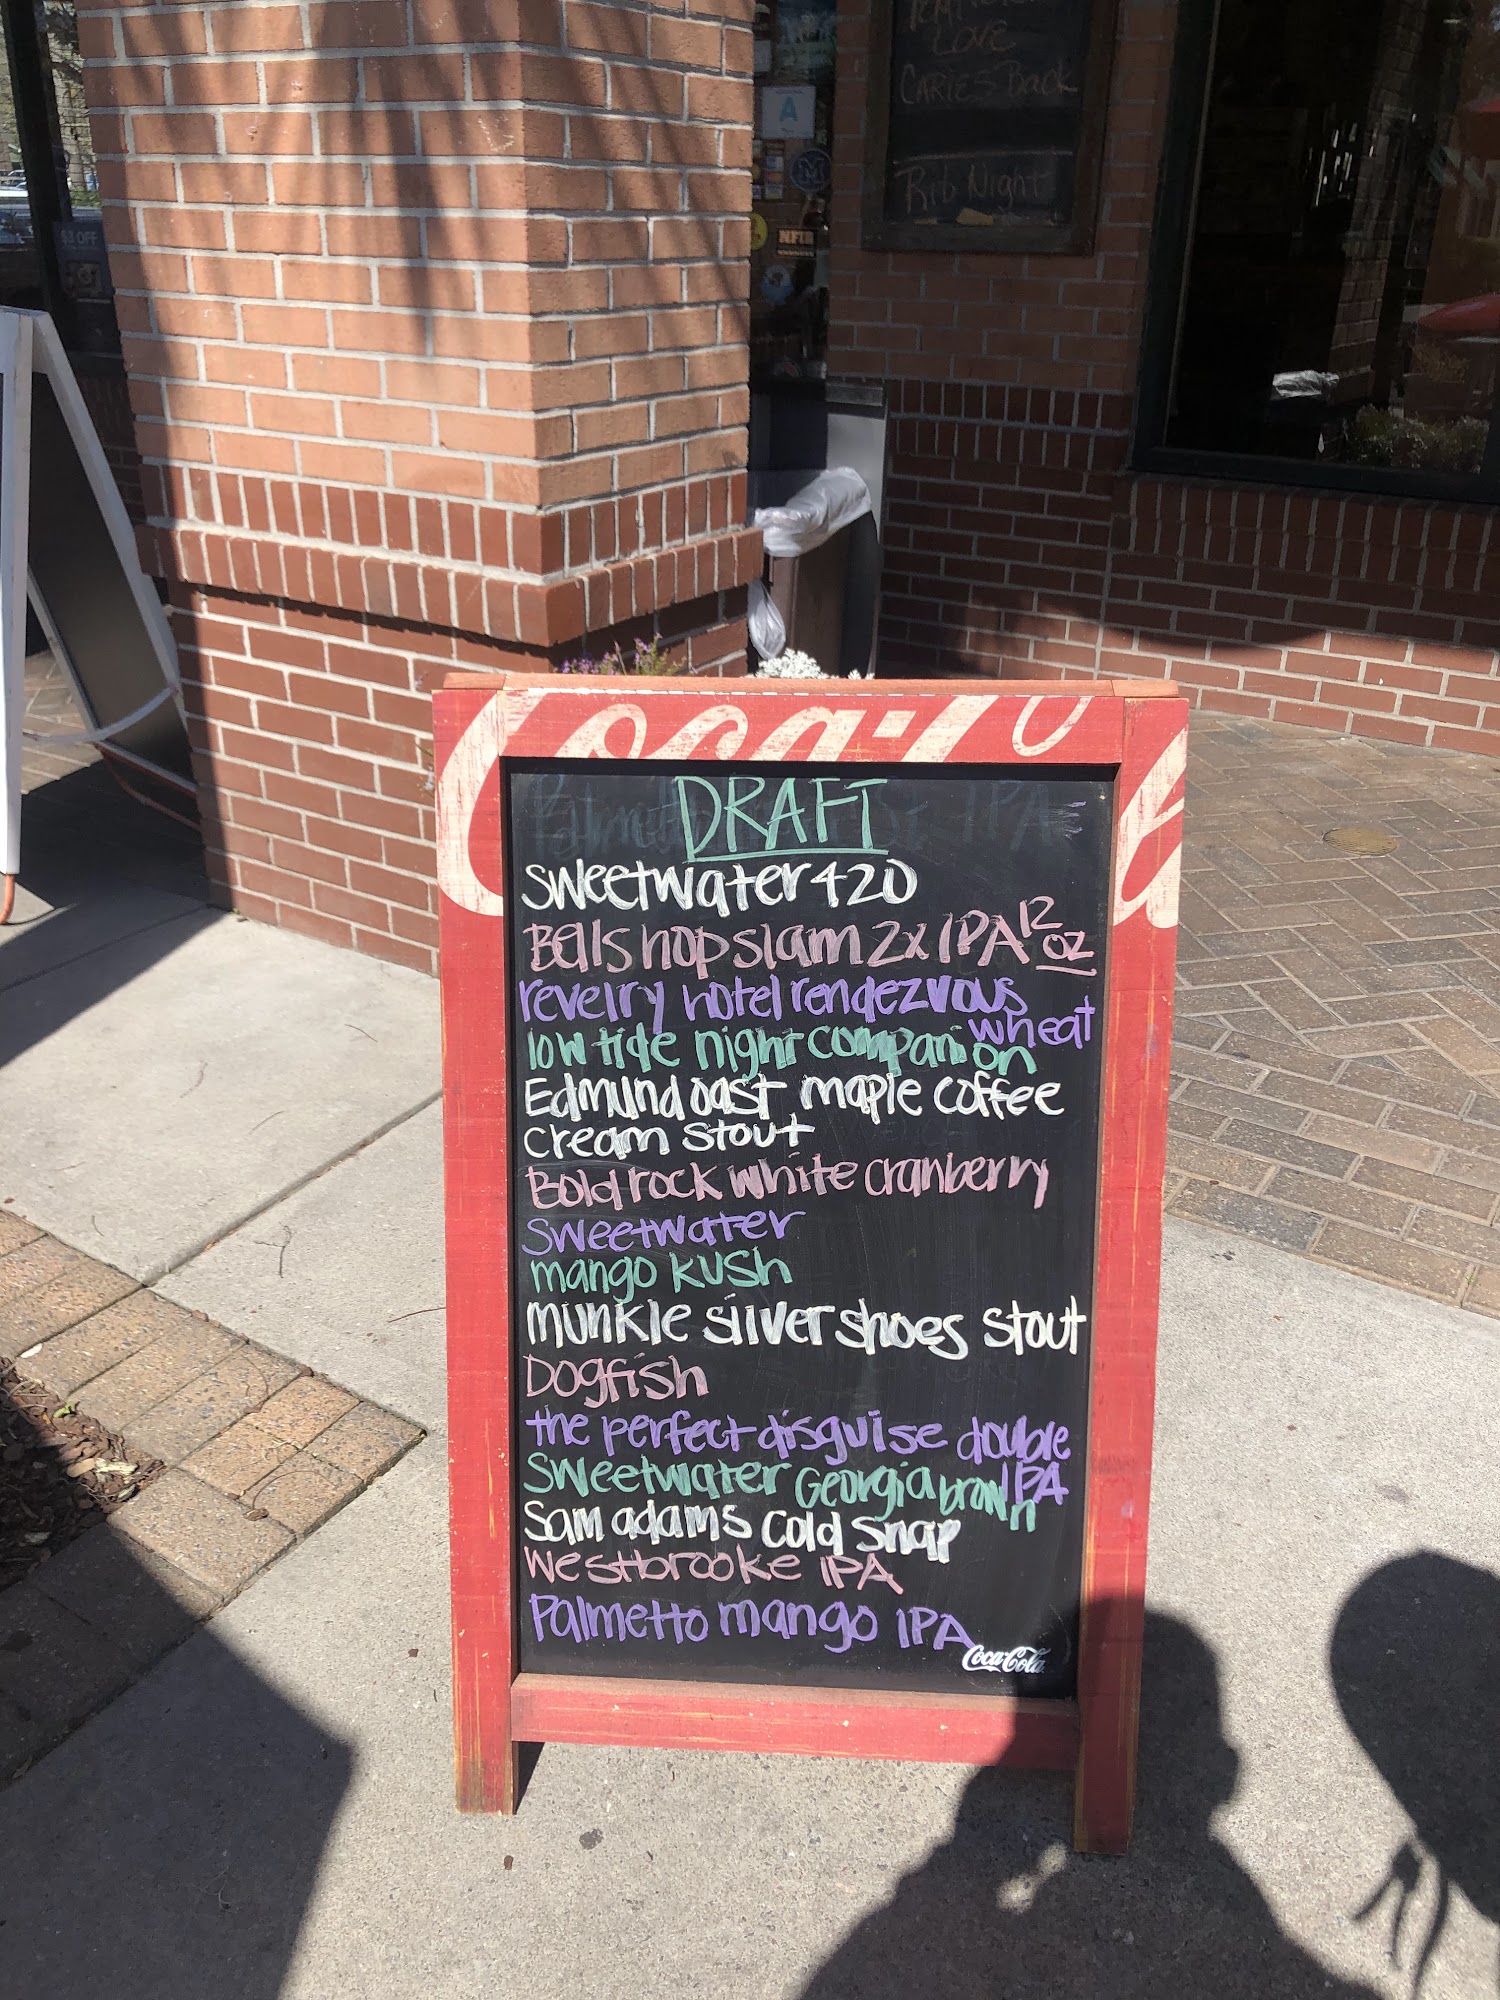 LOVE
CARIES Back
Rib Night
A
M
NFIB
$3 OFF
Coca-Co
DRAFT
IPA
Sweetwater 420
Bells hop slam 2x IPA 12 oz
revelry hotel rendezvous
wheat
low tide night companion
Edmund oast maple coffee
cream stout
Bold rock white cranberry
Sweetwater
mango kush
munkle silver shoes stout
Dogfish
the perfect disguise double
IPA
Sweetwater Georgia brown
Sam adams cold snap
Westbrooke IPA
Palmetto mango IPA
Coca-Cola